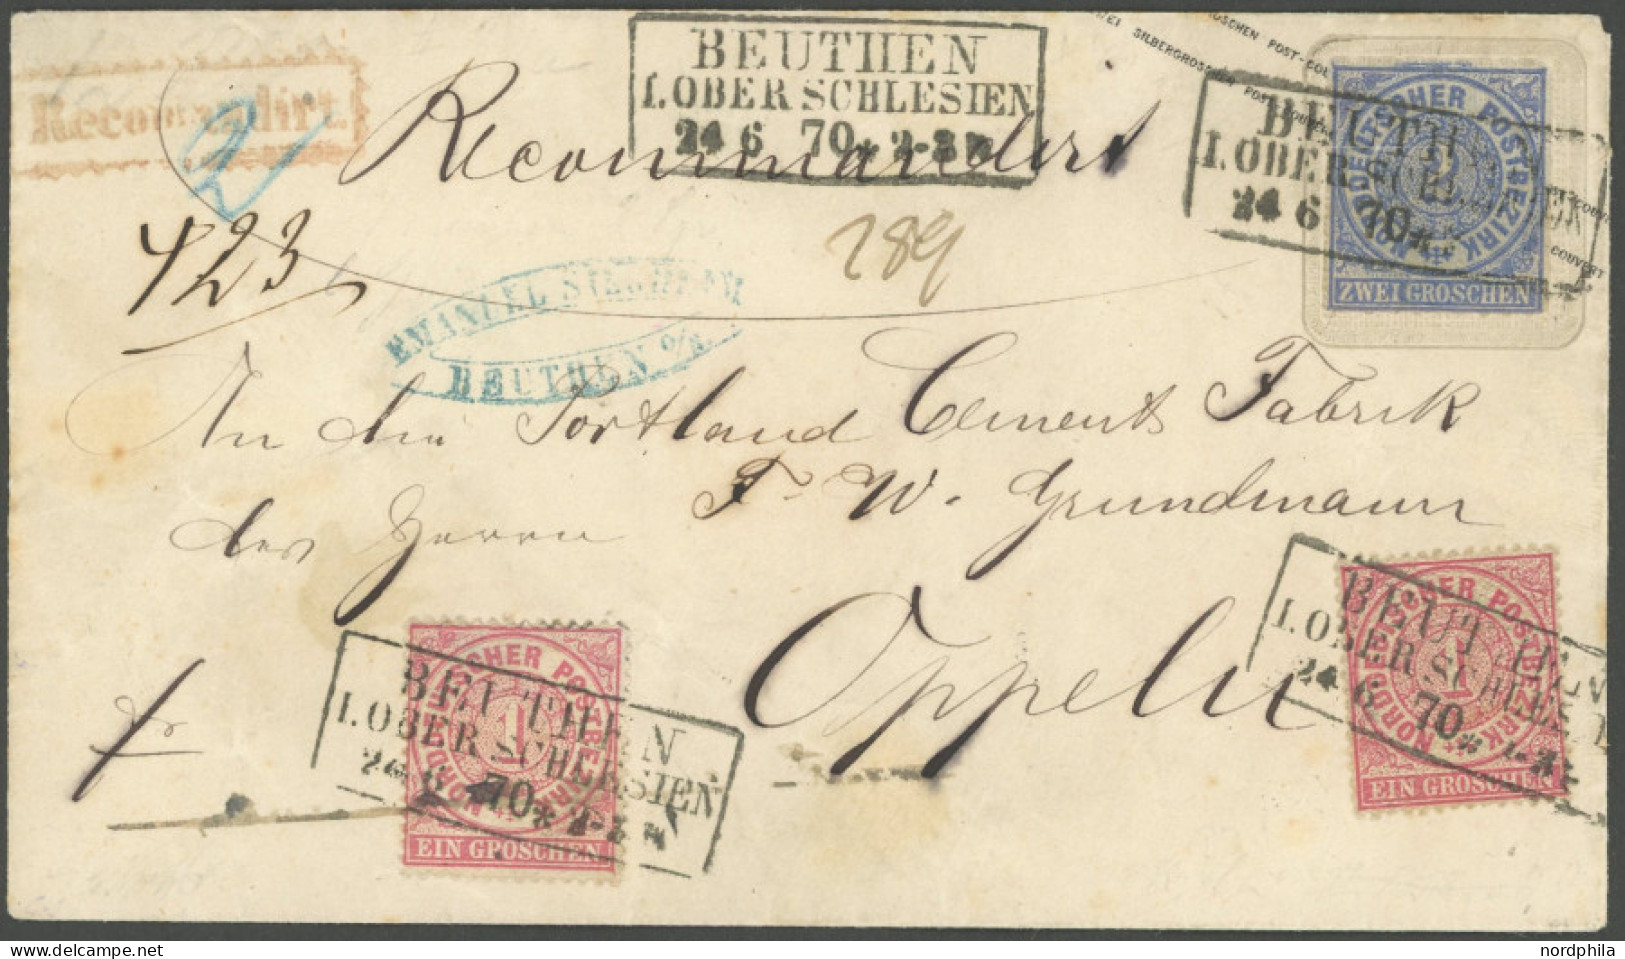 BEUTHEN
I. OBER SCHLESIEN
24 6 70 * 2-3 N
Recommandirt.
2
Recommandirt
ZWEI SILBERGROSCHEN POST-COUVERT
GROSCHEN POST-COU
NORDDEUTSCHER POSTBEZIRK
2
ZWEI GROSCHEN
BEUTHEN
I. OBER SCHLESIEN
24 6 70 *
423
289
EMANUEL
BEUTHEN O/S.
An die Portland Cement Fabrik
des Herrn F. W. Grundmann
Oppeln
fr
NORDDEUTSCHER POSTBEZIRK
1
EIN GROSCHEN
BEUTHEN
I. OBER SCHLESIEN
24 6 70 *
NORDDEUTSCHER POSTBEZIRK
1
EIN GROSCHEN
BEUTHEN
I. OBER SCHLESIEN
24 6 70 *
www.delcampe.net
nordphila